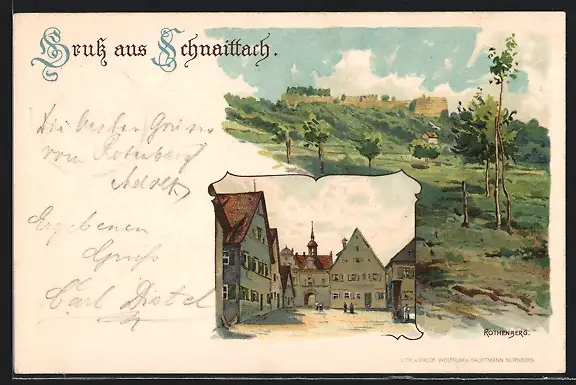 Gruß aus Schnaittach.
Die besten Grüsse
vom Rotenberg
Adolf
Ergebenen
Gruss
Carl Distel
ROTHENBERG.
LITH. v. DRUCK WOLFRUM & HAUPTMANN NÜRNBERG